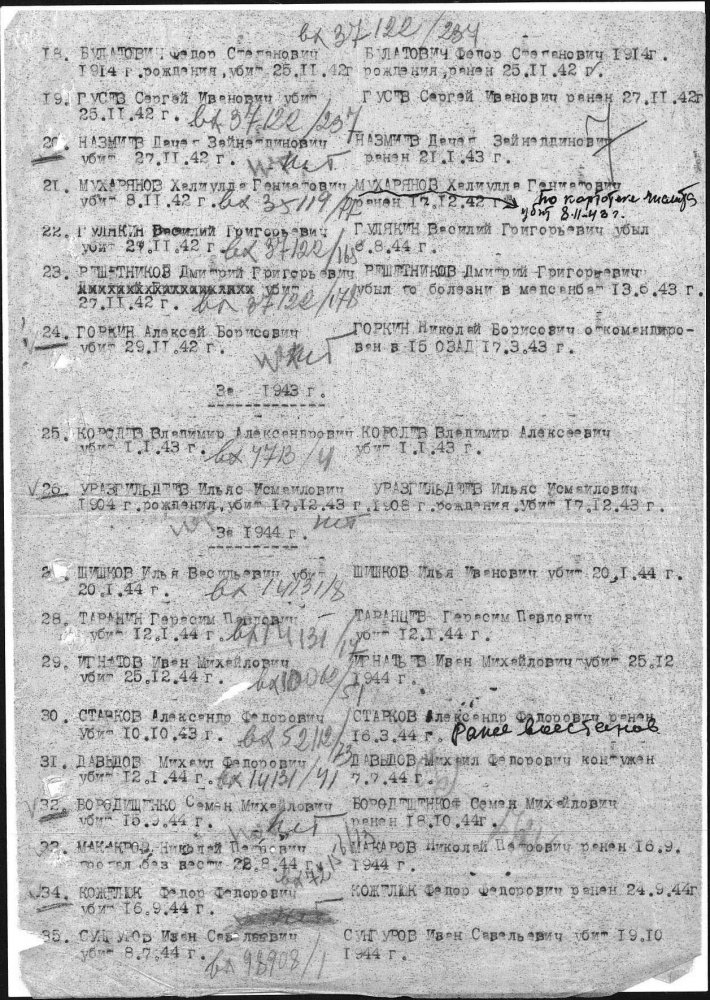 вх 37122/237
18. БУЛАТОВИЧ Федор Степанович БУЛАТОВИЧ Федор Степанович 1914г.
1914 г.рождения,убит 25.II.42г рождения,ранен 25.II.42 г.
19. ГУСЕВ Сергей Иванович убит ГУСЕВ Сергей Иванович ранен 27.II.42г
25.II.42 г. вх 37122/237
20. НАЗМИЕВ Зайнелдинович НАЗМИЕВ Зайнелдинович
убит 27.II.42 г. нет ранен 21.I.43 г.
21. МУХАРЯНОВ Халиулла Гениатович МУХАРЯНОВ Халиулла Гениатович
убит 8.II.42 г. вх 35119/77 ранен 17.12.42 г. по картотеке числит
убит 8-II-43 г.
22. ГУЛЯКИН Василий Григорьевич ГУЛЯКИН Василий Григорьевич убыл
убит 27.II.42 г. вх 37122/165 6.8.44 г.
23. РЕШЕТНИКОВ Дмитрий Григорьевич РЕШЕТНИКОВ Дмитрий Григорьевич
убит убыл по болезни в медсанбат 13.6.43 г.
27.II.42 г. вх 37122/178
24. ГОРКИН Алексей Борисович ГОРКИН Николай Борисович откомандиро-
убит 29.II.42 г. нет ван в 15 ОЗАД 17.3.43 г.
За 1943 г.
25. КОРОЛЕВ Владимир Александрович КОРОЛЕВ Владимир Алексеевич
убит I.I.43 г. вх 4713/41 убит I.I.43 г.
26. УРАЗГИЛЬДЕЕВ Ильяс Исмаилович УРАЗГИЛЬДЕЕВ Ильяс Исмаилович
1904 г.рождения,убит 17.12.43 г. 1908 г.рождения.Убит 17.12.43 г.
нет
За 1944 г.
ШИШКОВ Илья Васильевич убит ШИШКОВ Илья Иванович убит 20.I.44 г.
20.I.44 г. вх 14131/8
28. ТАРАНИН Герасим Павлович ТАРАНЦЕВ Герасим Павлович
убит 12.I.44 г. вх 14131/17 убит 12.I.44 г.
29. ИГНАТОВ Иван Михайлович ИГНАТЬЕВ Иван Михайлович убит 25.12
убит 25.12.44 г. вх 10060/51 1944 г.
30. СТАРКОВ Александр Федорович СТАРКОВ Александр Федорович ранен
убит 10.10.43 г. вх 52112/73 16.3.44 г. Ранее восстанов
31. ДАВЫДОВ Михаил Федорович ДАВЫДОВ Михаил Федорович контужен
убит 12.I.44 г. вх 14131/41 7.7.44 г.
32. БОРОДИЩЕНКО Семен Михайлович БОРОДЕЩЕНКОФ Семен Михайлович
убит 15.9.44 г. нет ранен 18.10.44г.
33. МАКАКРОВ Николай Петрович МАКАРОВ Николай Петрович ранен 16.9.
пропал без вести 22.8.44 г. 1944 г.
34. КОЖЕЛЮК Федор Федорович КОЖЕЛЮК Федор Федорович ранен 24.9.44г
убит 16.9.44 г.
35. СУНГУРОВ Иван Савельевич СУНГУРОВ Иван Савельевич убит 19.10
убит 8.7.44 г. вх 98908/1 1944 г.